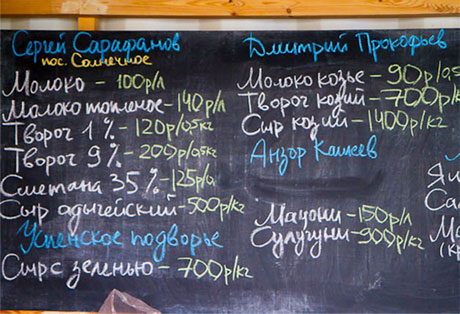 Сергей Сарафанов
пос. Солнечное
Молоко - 100 р/л
Молоко топленое - 140 р/л
Творог 1% - 120 р/0,5кг
Творог 9% - 200р/0,5кг
Сметана 35% - 125р/
Сыр адыгейский - 500 р/кг
Успенское подворье
Сыр с зеленью - 700 р/кг
Дмитрий Прокофьев
Молоко козье - 90 р/0,5
Творог козий - 700 р/к
Сыр козий - 1400 р/кг
Анзор Кашев
Мацони - 150 р/л
Сулугуни - 900 р/кг